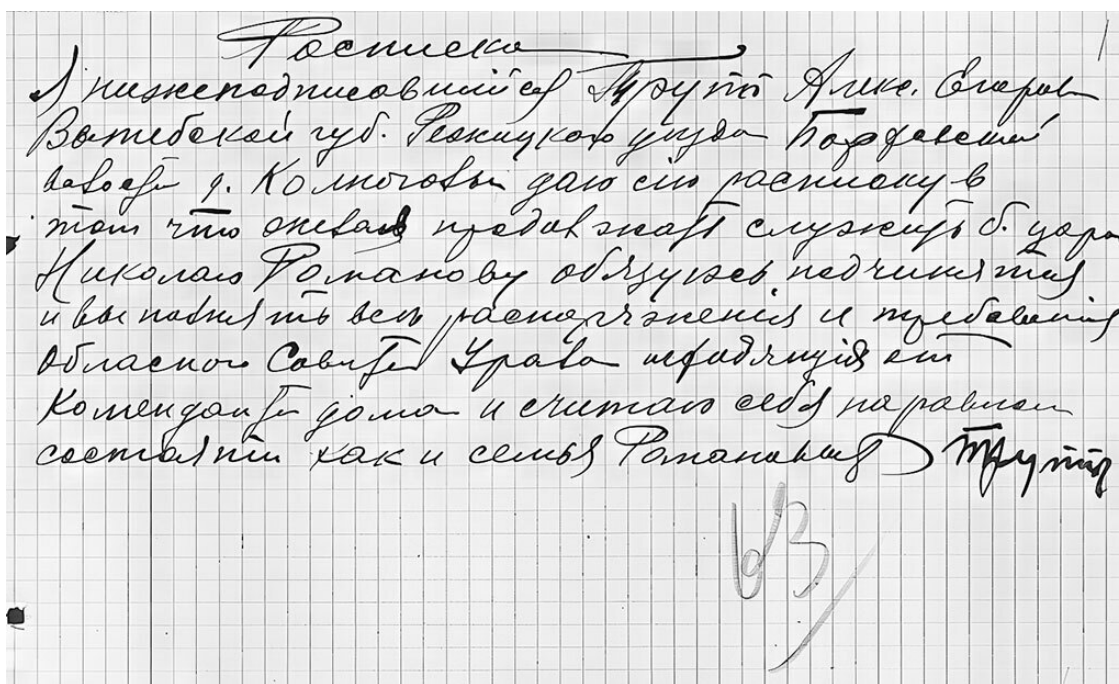 Расписка
Я нижеподписавшийся Трупп Алекс. Егоров
Витебской губ. Режицкого уезда
д. даю сию расписку в
том что желая продолжать служить б. царю
Николаю Романову обязуюсь подчинятся
и выполнять все распоряжения и требования
Областного Совета Урала исходящия от
Коменданта дома и считать себя на равном
состоянии как и семья Романовых Трупп
63